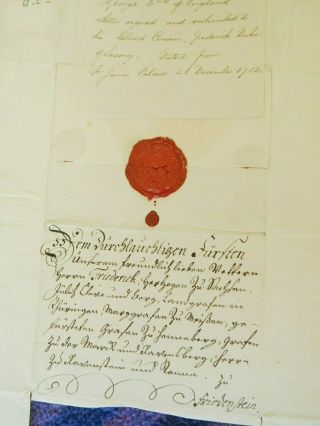 George 2nd of England
letter signed and submitted to
his beloved Cousin, Frederick Duke
of Saxony. Dated from
St James Palace 21 December 17
Dem Durchlauchtigen Fürsten
Unserem freundlich lieben Vettern
Herrn Friederich, Hertzogen Zu Sachsen,
Jülich Cleve und Berg, Landgrafen in
Thüringen Marggrafen Zu Meißen, ge-
fürsteten Grafen Zu Henneberg, Grafen
Zu der Marck und Ravensberg, Herrn
Zu Ravenstein und Tonna. Zu
Friedenstein